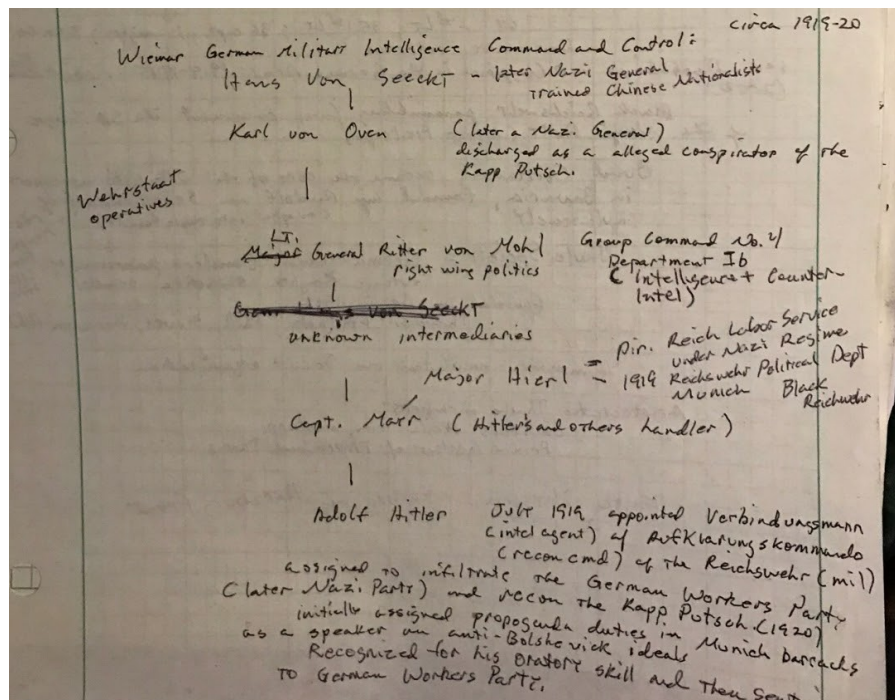 circa 1919-20
Wiemar German Militart Intelligence Command and Control:
Hans Von Seeckt - later Nazi General
Trained Chinese Nationalists
Karl von Oven (later a Nazi General)
discharged as a alleged conspirator of the
Kapp Putsch.
Wehrstaat
operatives
LT.
Major General Ritter von Mohl Group Command No. 4/
right wing politics Department Ib
(Intelligence + Counter-
Intel)
Von SeeckT
unknown intermediaries
Major Hierl = Dir. Reich Labor Service
under Nazi Regime
- 1919 Reichswehr Political Dept
Munich Black
Reichwehr
Capt. Mayr (Hitler's and others handler)
Adolf Hitler July 1919 appointed Verbindungsmann
(intel agent) of Aufklarungskommando
(recon cmd) of the Reichswehr (mil)
assigned to infiltrate the German Workers Party
(later Nazi Party) and recon the Kapp Putsch. (1920)
initially assigned propoganda duties in Munich barracks
as a speaker on anti-Bolshevick ideals
Recognized for his oratory skill and then sent
To German Workers Party.